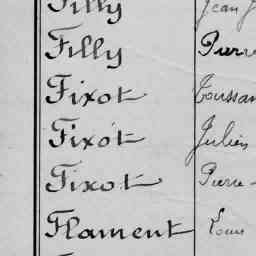 Filly Jean
Filly Pierre
Fixot Toussan
Fixot Julien
Fixot Pierre-
Flament Louis